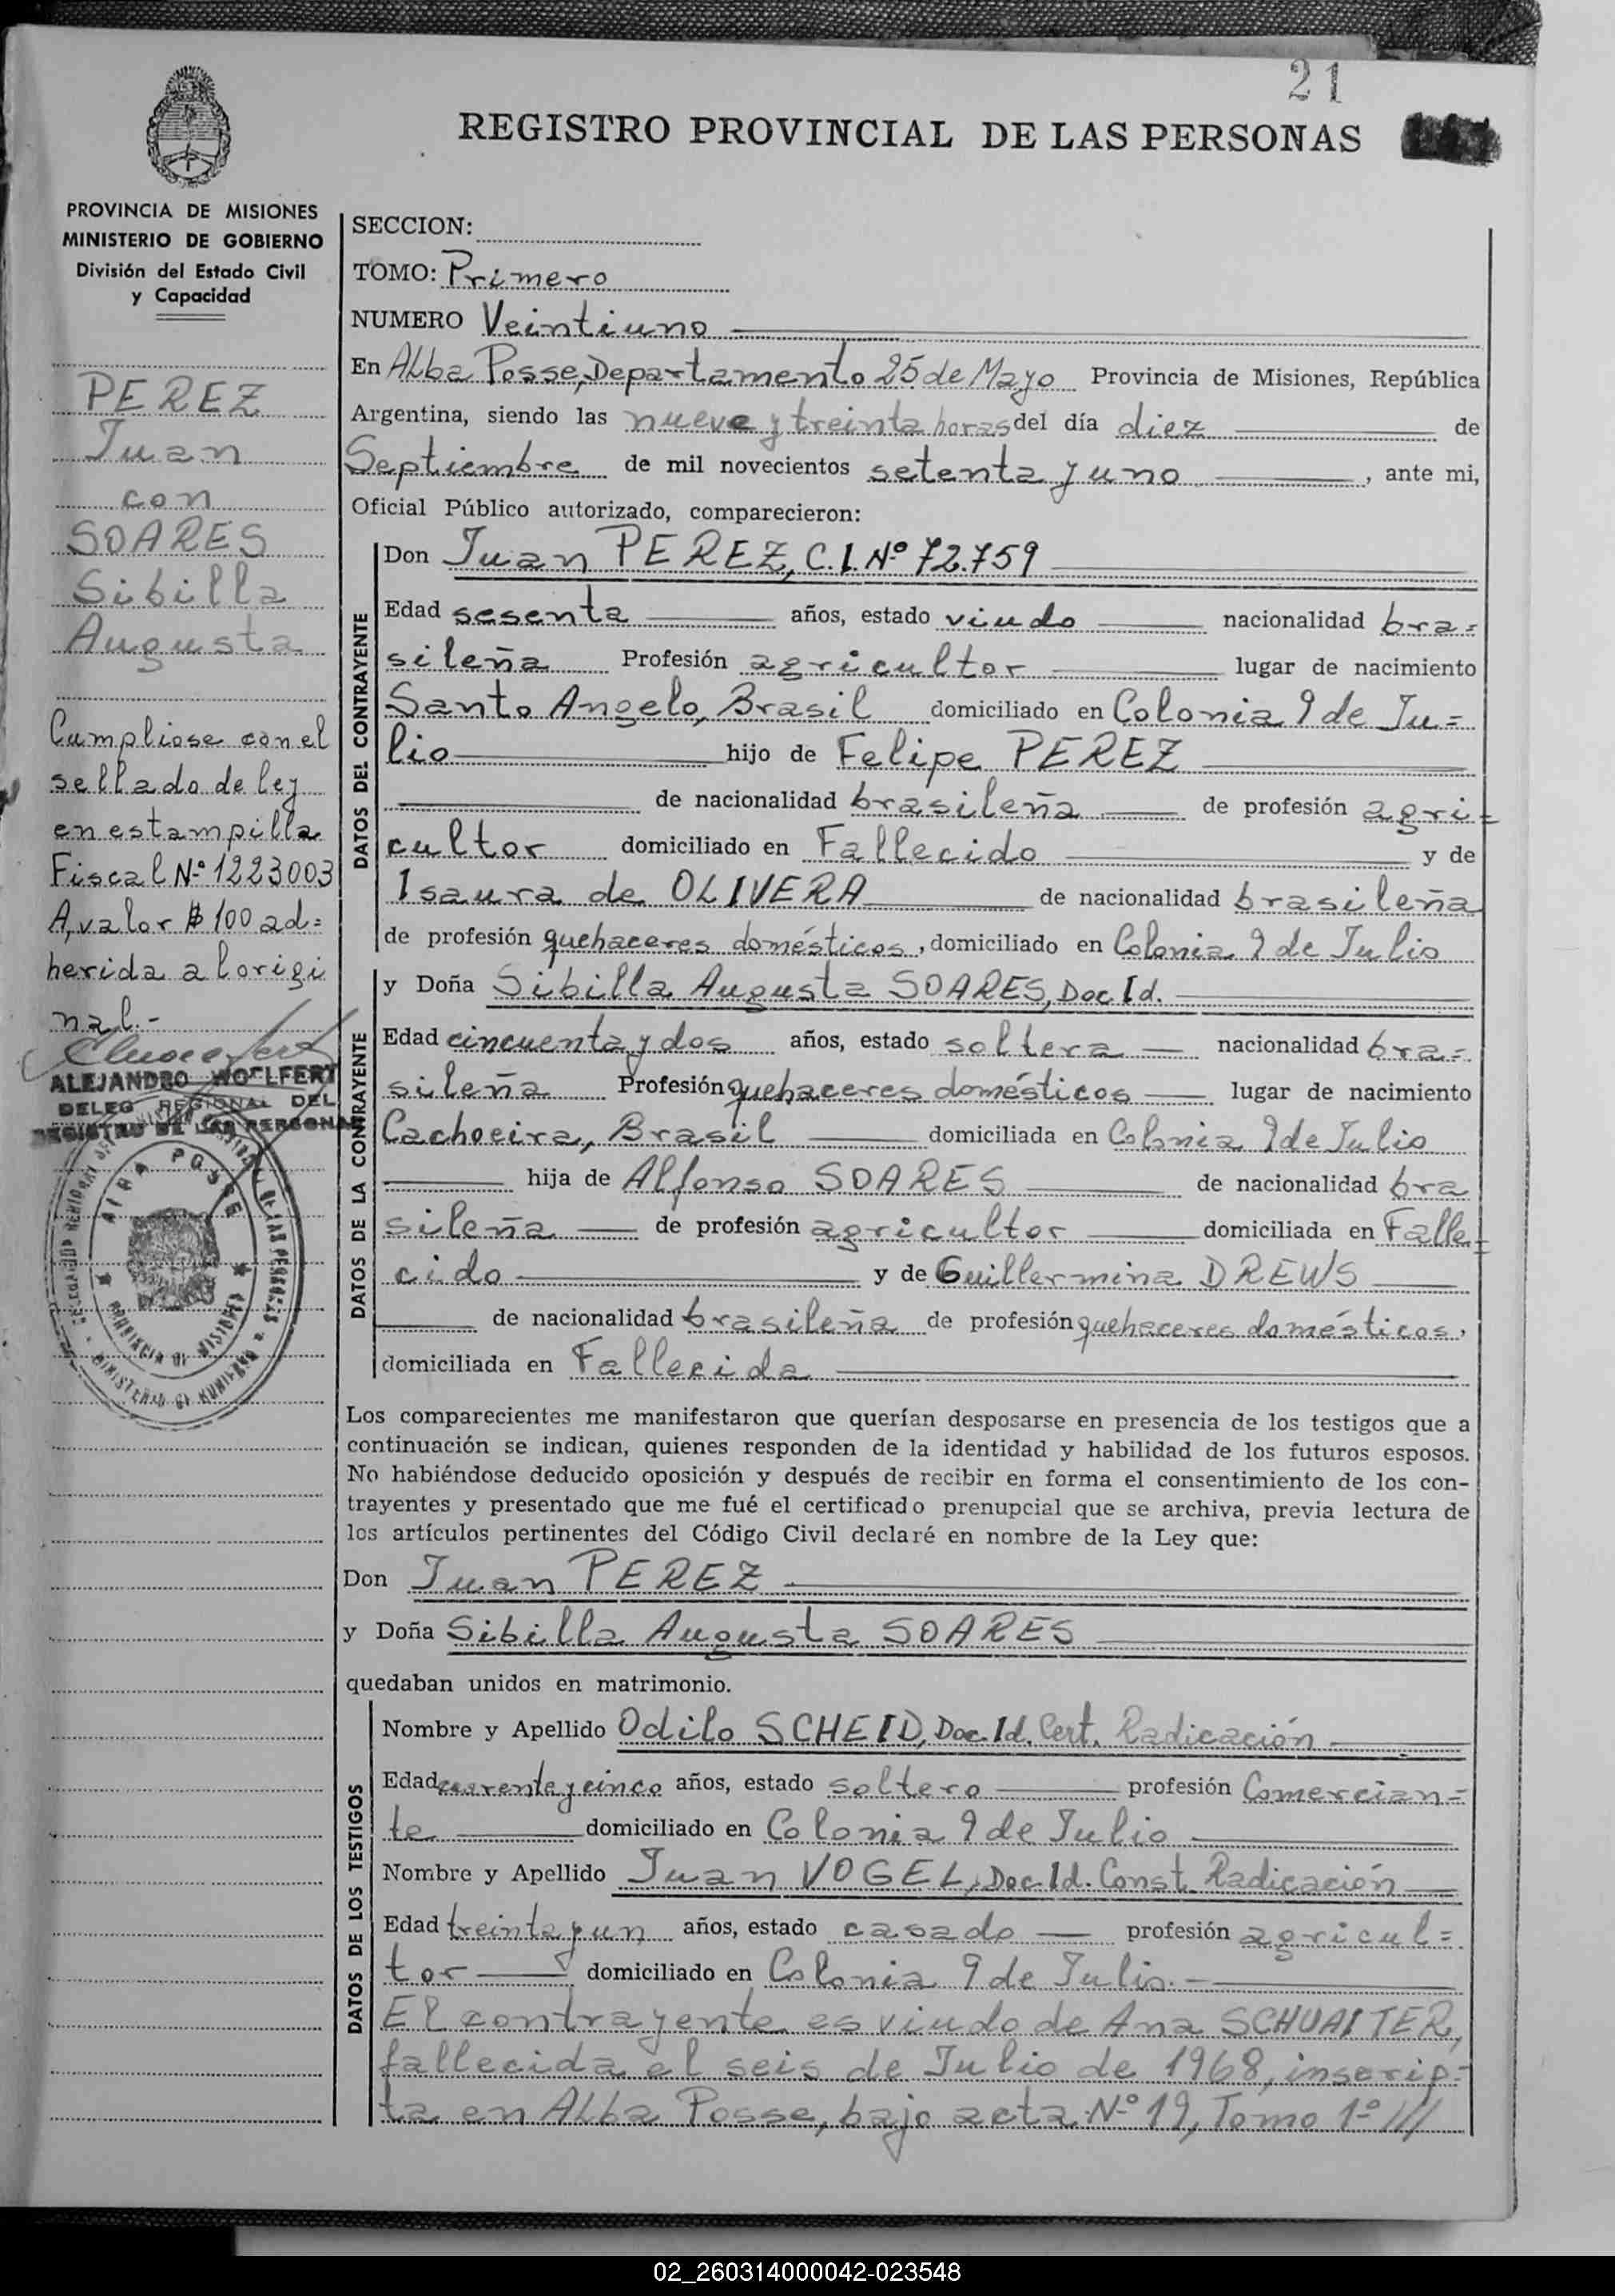 21
REGISTRO PROVINCIAL DE LAS PERSONAS
PROVINCIA DE MISIONES
MINISTERIO DE GOBIERNO
División del Estado Civil
y Capacidad
PEREZ
Juan
con
SOARES
Sibilla
Augusta
Cumpliose con el
sellado de ley
en estampilla
Fiscal Nº 1223003
A, valor $ 100 ad=
herida al origi
nal.-
ALEJANDRO WOELFERT
DELEG REGIONAL DEL
REGISTRO DE LAS PERSONAS
ALBA POSSE
PROVINCIA DE MISIONES
MINISTERIO DE GOBIERNO
SECCION:
TOMO: Primero
NUMERO Veintiuno
En Alba Posse, Departamento 25 de Mayo Provincia de Misiones, República
Argentina, siendo las nueve y treinta horas del día diez de
Septiembre de mil novecientos setenta y uno, ante mi,
Oficial Público autorizado, comparecieron:
DATOS DEL CONTRAYENTE
Don Juan PEREZ, C.I. Nº 72.759
Edad sesenta años, estado viudo nacionalidad bra=
sileña Profesión agricultor lugar de nacimiento
Santo Angelo, Brasil domiciliado en Colonia 9 de Ju=
lio hijo de Felipe PEREZ
de nacionalidad brasileña de profesión agri=
cultor domiciliado en Fallecido y de
Isaura de OLIVERA de nacionalidad brasileña
de profesión quehaceres domésticos, domiciliado en Colonia 9 de Julio
DATOS DE LA CONTRAYENTE
y Doña Sibilla Augusta SOARES, Doc Id.
Edad cincuenta y dos años, estado soltera nacionalidad bra=
sileña Profesión quehaceres domésticos lugar de nacimiento
Cachoeira, Brasil domiciliada en Colonia 9 de Julio
hija de Alfonso SOARES de nacionalidad bra
sileña de profesión agricultor domiciliada en Falle=
cido y de Guillermina DREWS
de nacionalidad brasileña de profesión quehaceres domésticos,
domiciliada en Fallecida
Los comparecientes me manifestaron que querían desposarse en presencia de los testigos que a
continuación se indican, quienes responden de la identidad y habilidad de los futuros esposos.
No habiéndose deducido oposición y después de recibir en forma el consentimiento de los con-
trayentes y presentado que me fué el certificado prenupcial que se archiva, previa lectura de
los artículos pertinentes del Código Civil declaré en nombre de la Ley que:
Don Juan PEREZ
y Doña Sibilla Augusta SOARES
quedaban unidos en matrimonio.
DATOS DE LOS TESTIGOS
Nombre y Apellido Odilo SCHEID, Doc. Id. Cert. Radicación
Edad cuarenta y cinco años, estado soltero profesión Comercian=
te domiciliado en Colonia 9 de Julio
Nombre y Apellido Juan VOGEL, Doc. Id. Const. Radicación
Edad treinta y un años, estado casado profesión agricul=
tor domiciliado en Colonia 9 de Julio.-
El contrayente es viudo de Ana SCHUAITER,
fallecida el seis de Julio de 1968, inscrip=
ta en Alba Posse, bajo acta Nº 19, Tomo 1º ///
02_260314000042-023548